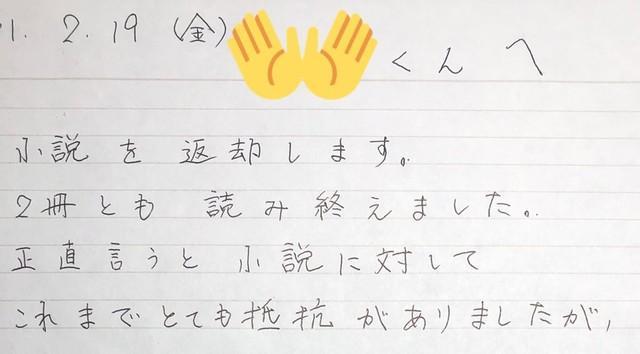 1. 2. 19 (金) くんへ
小説を返却します。
2冊とも 読み終えました。
正直言うと小説に対して
これまでとても抵抗がありましたが,